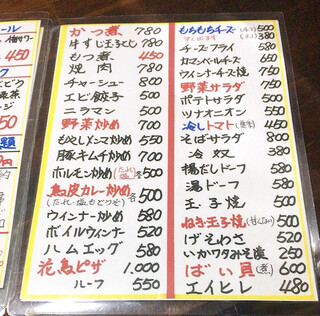 かつ煮 780
牛すじ玉子とじ 780
もつ煮 450
焼肉 780
チャーシュー 800
エビ餃子 500
ニラマン 500
野菜炒め 700
もやしメンマ炒め 550
豚キムチ炒め 700
ホルモン炒め 500
魚皮カレー炒め各 500
(たれ・塩もどうぞ)
ウィンナー炒め 580
ボイルウィンナー 520
ハムエッグ 580
花鳥ピザ 1.000
ハーフ 550
もちもちチーズ 500
380
チーズフライ 580
カマンベールチーズ 600
ウィンナーチーズ焼 750
野菜サラダ 750
ポテトサラダ 500
ツナオニオン 550
冷しトマト 450
そばサラダ 800
冷奴 380
揚だしドーフ 580
湯ドーフ 580
玉子焼 500
ねぎ玉子焼 500
げそわさ 520
いかワタみそ漬 250
ばい貝(煮) 600
エイヒレ 480